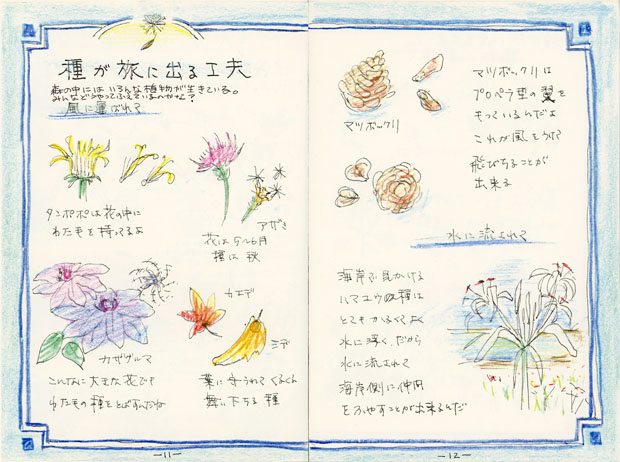 種が旅に出る工夫
森の中にはいろんな植物が生きている。
みんなどうやってふえているのかな?
風に運ばれて
タンポポは花の中に
わた毛を持ってるよ
アザミ
花は5〜6月
種は 秋
カザグルマ
こんなに大きな花でも
わた毛の種をとばすんだね
カエデ
葉に守られてくるくる
舞い下ちる 種
―11―
マツボックリ
マツボックリは
プロペラ型の翼を
もっているんだよ
これが風をうけて
飛びちることが
出来る
水に流されて
海岸で見かける
ハマユウの種は
とてもかるくて
水に浮く、だから
水に流されて
海岸側に仲間
をふやすことが出来るんだ
―12―